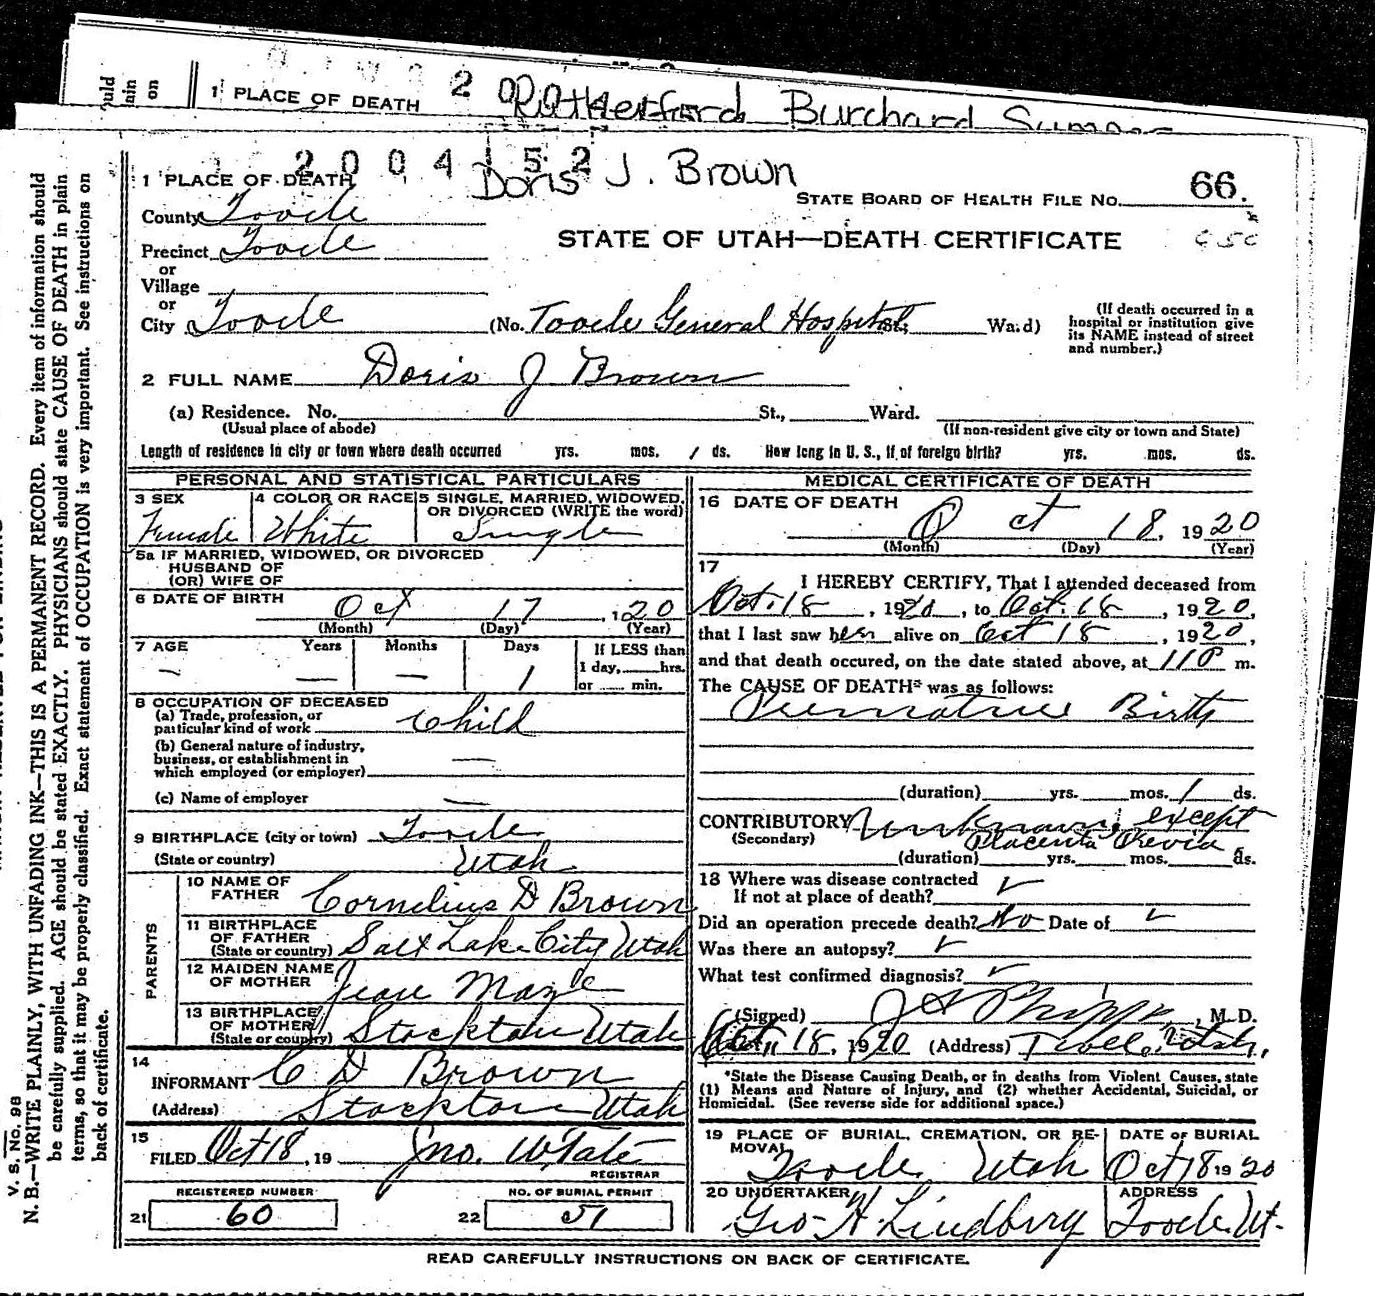 ould
ain on
1 PLACE OF DEATH 2 0 0 Rutherford Burchard Sumner
2 0 0 4 1 5 2
Doris J. Brown
STATE BOARD OF HEALTH FILE No. 66.
STATE OF UTAH—DEATH CERTIFICATE
1 PLACE OF DEATH
County Tooele
Precinct Tooele
or
Village
or
City Tooele (No. Tooele General Hospital St; Ward)
(If death occurred in a
hospital or institution give
its NAME instead of street
and number.)
2 FULL NAME Doris J Brown
(a) Residence. No. St., Ward.
(Usual place of abode) (If non-resident give city or town and State)
Length of residence in city or town where death occurred yrs. mos. 1 ds. How long in U. S., if of foreign birth? yrs. mos. ds.
PERSONAL AND STATISTICAL PARTICULARS
3 SEX 4 COLOR OR RACE 5 SINGLE, MARRIED, WIDOWED,
OR DIVORCED (WRITE the word)
Female White Single
5a IF MARRIED, WIDOWED, OR DIVORCED
HUSBAND OF
(OR) WIFE OF
6 DATE OF BIRTH Oct 17, 1920
(Month) (Day) (Year)
7 AGE Years Months Days If LESS than
1 day, hrs.
or min.
— — — 1
8 OCCUPATION OF DECEASED
(a) Trade, profession, or
particular kind of work Child
(b) General nature of industry,
business, or establishment in
which employed (or employer) —
(c) Name of employer —
9 BIRTHPLACE (city or town) Tooele
(State or country) Utah
PARENTS
10 NAME OF
FATHER Cornelius D Brown
11 BIRTHPLACE
OF FATHER
(State or country) Salt Lake City Utah
12 MAIDEN NAME
OF MOTHER Jean Mazie
13 BIRTHPLACE
OF MOTHER
(State or country) Stockton Utah
14
INFORMANT C D Brown
(Address) Stockton Utah
15
FILED Oct 18, 19 Jno. W. Tate
REGISTRAR
REGISTERED NUMBER NO. OF BURIAL PERMIT
21 60 22 51
MEDICAL CERTIFICATE OF DEATH
16 DATE OF DEATH
Oct 18. 1920
(Month) (Day) (Year)
17
I HEREBY CERTIFY, That I attended deceased from
Oct. 18, 1920, to Oct. 18, 1920,
that I last saw her alive on Oct 18, 1920,
and that death occured, on the date stated above, at 110 m.
The CAUSE OF DEATH* was as follows:
Premature Birth
(duration) yrs. mos. 1 ds.
CONTRIBUTORY Unknown, except
(Secondary) Placenta Previa
(duration) yrs. mos. ds.
18 Where was disease contracted
If not at place of death? ✓
Did an operation precede death? No Date of ✓
Was there an autopsy? ✓
What test confirmed diagnosis? ✓
(Signed) J A Phipps, M. D.
Oct 18, 1920 (Address) Tooele, Utah.
*State the Disease Causing Death, or in deaths from Violent Causes, state
(1) Means and Nature of Injury, and (2) whether Accidental, Suicidal, or
Homicidal. (See reverse side for additional space.)
19 PLACE OF BURIAL, CREMATION, OR RE-
MOVAL DATE OF BURIAL
Tooele Utah Oct 18 1920
20 UNDERTAKER ADDRESS
Geo. H. Lindberg Tooele Ut.
READ CAREFULLY INSTRUCTIONS ON BACK OF CERTIFICATE.
V. S. No. 98
N. B.—WRITE PLAINLY, WITH UNFADING INK—THIS IS A PERMANENT RECORD. Every item of information should
be carefully supplied. AGE should be stated EXACTLY. PHYSICIANS should state CAUSE OF DEATH in plain
terms, so that it may be properly classified. Exact statement of OCCUPATION is very important. See instructions on
back of certificate.